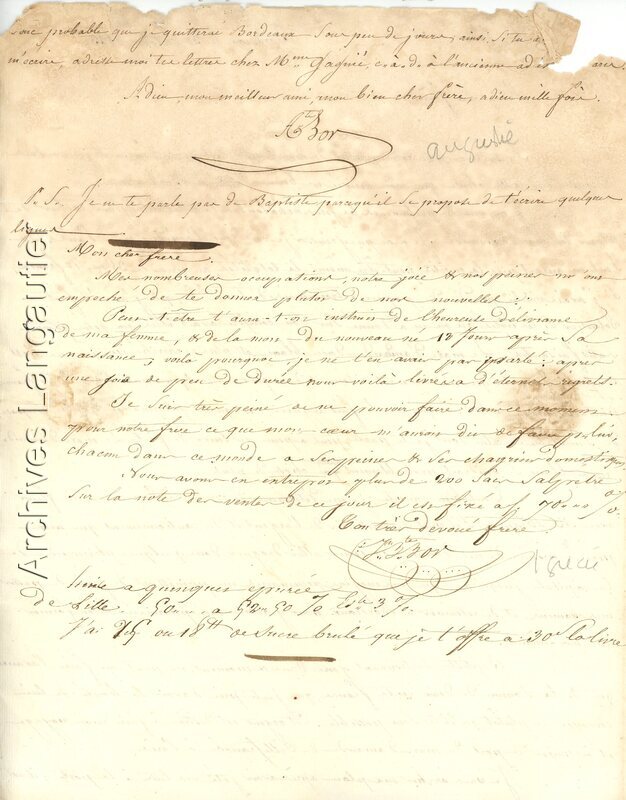 donc probable que je quitterai Bordeaux sous peu de jours, ainsi, si tu a
m'écrire, adresse moi tes lettres chez Mme Gagnié, c.à.d. à l'ancienne adres
Adieu, mon meilleur ami, mon bien cher frère, adieu mille fois.
Ate Bor
auguste
P. S. Je ne te parle pas de Baptiste parcequ'il se propose de t'écrire quelques
lignes
Mon cher frere.
Mes nombreuses occupations, notre joie & nos peines m'ont
empeché de te donner plutot de nos nouvelles :
Peut-etre t'aura-t-on instruit de l'heureuse délivrance
de ma femme, & de la mort du nouveau né 18 Jours après sa
naissance, voilà pourquoi je ne t'en avais pas parlé : après
une joie de peu de durée nous voilà livrés a d'éternels regrets.
Je suis très peiné de ne pouvoir faire dans ce moment
pour notre frere ce que mon cœur m'aurait du faire plutôt,
chacun dans ce monde a ses peines & ses chagrins domestiques,
Nous avons en entrepos plus de 200 Sacs Salpetre
Sur la note des ventes de ce jour il est fixé a f 70 %
Ton très devoué frere
J. Bte Bor
huile a quinquet epurée
de Lille 50 a 52 50 % Esc. 3 %
J'ai 15 ou 18 tt de sucre brulé que je t'offre a 30 s la livre
© Archives Langautier